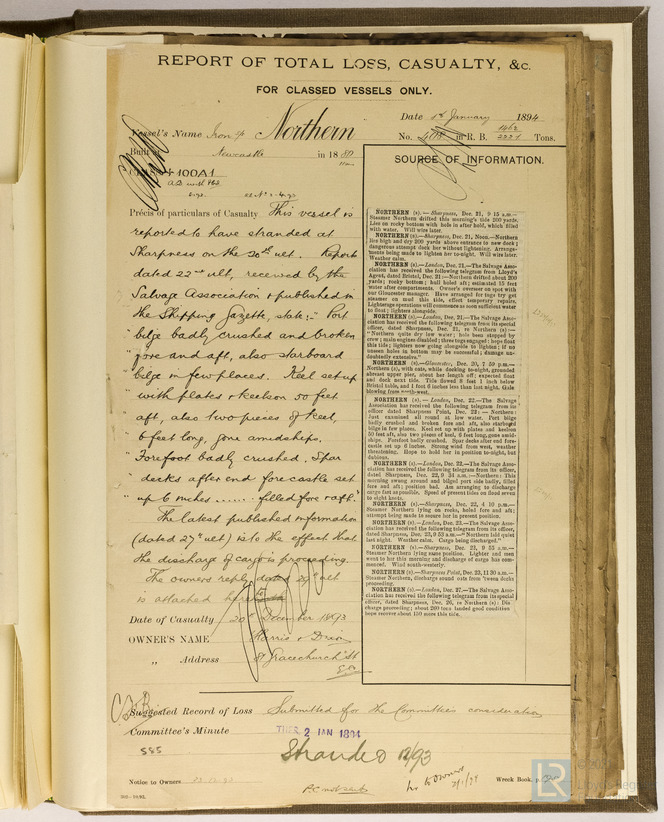 REPORT OF TOTAL LOSS, CASUALTY, &c.
FOR CLASSED VESSELS ONLY.
Date 1st January 1894
Vessel's Name Iron Northern
No. in R. B. 1462 2221 Tons.
Built at Newcastle in 1880
100A1
SOURCE OF INFORMATION.
Précis of particulars of Casualty This vessel is
reported to have stranded at
Sharpness on the 20th ult. Report
dated 22nd ult, received by the
Salvage Association & published in
the Shipping Gazette, state:- "Port
" bilge badly crushed and broken
" fore and aft, also starboard
" bilge in few places. Keel set up
" with plates & keelson 50 feet
" aft, also two pieces of keel,
" 6 feet long, gone amidships.
" Forefoot badly crushed. Spar
" decks after end forecastle set
" up 6 inches ...... filled fore & aft."
The latest published information
(dated 27th ult) is to the effect that
the discharge of cargo is proceeding.
The owners reply dated 29th ult
is attached
NORTHERN (s).—Sharpness, Dec. 21, 9 15 a.m.—
Steamer Northern drifted this morning's tide 200 yards.
Lies on rocky bottom with hole in after hold, which filled
with water. Will wire later.
NORTHERN (s).—Sharpness, Dec. 21, Noon.—Northern
lies high and dry 200 yards above entrance to new dock;
dangerous attempt dock her without lightening. Arrange-
ments being made to lighten her to-night. Will wire later.
Weather calm.
NORTHERN (s).—London, Dec. 21.—The Salvage Asso-
ciation has received the following telegram from Lloyd's
Agent, dated Bristol, Dec. 21:—Northern drifted about 200
yards; rocky bottom; hull holed aft; estimated 15 feet
water after compartments. Owner's overseer on spot with
our Gloucester manager. Have arranged for tugs try get
steamer on mud this tide, effect temporary repairs.
Lighterage operations will commence as soon sufficient water
to float; lighters alongside.
NORTHERN (s).—London, Dec. 21.—The Salvage Asso-
ciation has received the following telegram from its special
officer, dated Sharpness, Dec. 21, re Northern (s):—
"Northern quite dry low water; hole been stopped by
crew; main engines disabled; three tugs engaged; hope float
this tide; lighters now going alongside to lighten; if no
unseen holes in bottom may be successful; damage un-
doubtedly extensive."
NORTHERN (s).—Gloucester, Dec. 20, 7 59 p.m.—
Northern (s), with oats, while docking to-night, grounded
abreast upper pier, about her length off; expected float
and dock next tide. Tide flowed 8 feet 1 inch below
Bristol table, and 1 foot 6 inches less than last night. Gale
blowing from north-west.
NORTHERN (s).—London, Dec. 22.—The Salvage
Association has received the following telegram from its
officer dated Sharpness Point, Dec. 22:—Northern:
Just examined all round at low water. Port bilge
badly crushed and broken fore and aft, also starboard
bilge in few places. Keel set up with plates and keelson
50 feet aft, also two pieces of keel, 6 feet long, gone amid-
ships. Forefoot badly crushed. Spar decks after end fore-
castle set up 6 inches. Strong wind from west, weather
threatening. Hope to hold her in position to-night, but
dubious.
NORTHERN (s).—London, Dec. 22.—The Salvage Asso-
ciation has received the following telegram from its officer,
dated Sharpness, Dec. 22, 9 34 a.m.: Northern:—This
morning swung around and bilged port side badly, filled
fore and aft; position bad. Am arranging to discharge
cargo fast as possible. Speed of present tides on flood seven
to eight knots.
NORTHERN (s).—Sharpness, Dec. 22, 4 10 p.m.—
Steamer Northern lying on rocks, holed fore and aft;
attempt being made to secure her in present position.
NORTHERN (s).—London, Dec. 23.—The Salvage Asso-
ciation has received the following telegram from its officer,
dated Sharpness, Dec. 23, 9 53 a.m.—"Northern laid quiet
last night. Weather calm. Cargo being discharged."
NORTHERN (s).—Sharpness, Dec. 23, 9 55 a.m.—
Steamer Northern lying same position. Lighter and men
went to her this morning and discharge of cargo has com-
menced. Wind south-westerly.
NORTHERN (s).—Sharpness Point, Dec. 23, 11 30 a.m.—
Steamer Northern, discharge round oats from 'tween decks
proceeding.
NORTHERN (s).—London, Dec. 27.—The Salvage Asso-
ciation has received the following telegram from its special
officer, dated Sharpness, Dec. 26, re Northern (s): Dis-
charge proceeding; about 260 tons landed good condition
hope recover about 150 more this tide.
Date of Casualty 20th December 1893
OWNER'S NAME Harris & Dixon
" Address 81 Gracechurch St
E.C.
Suggested Record of Loss Submitted for the Committee's consideration
Committee's Minute TUES. 2 JAN 1894
585
Stranded 12/93
Notice to Owners
P.C. not sent
to Owners 2/1/94
Wreck Book, p.